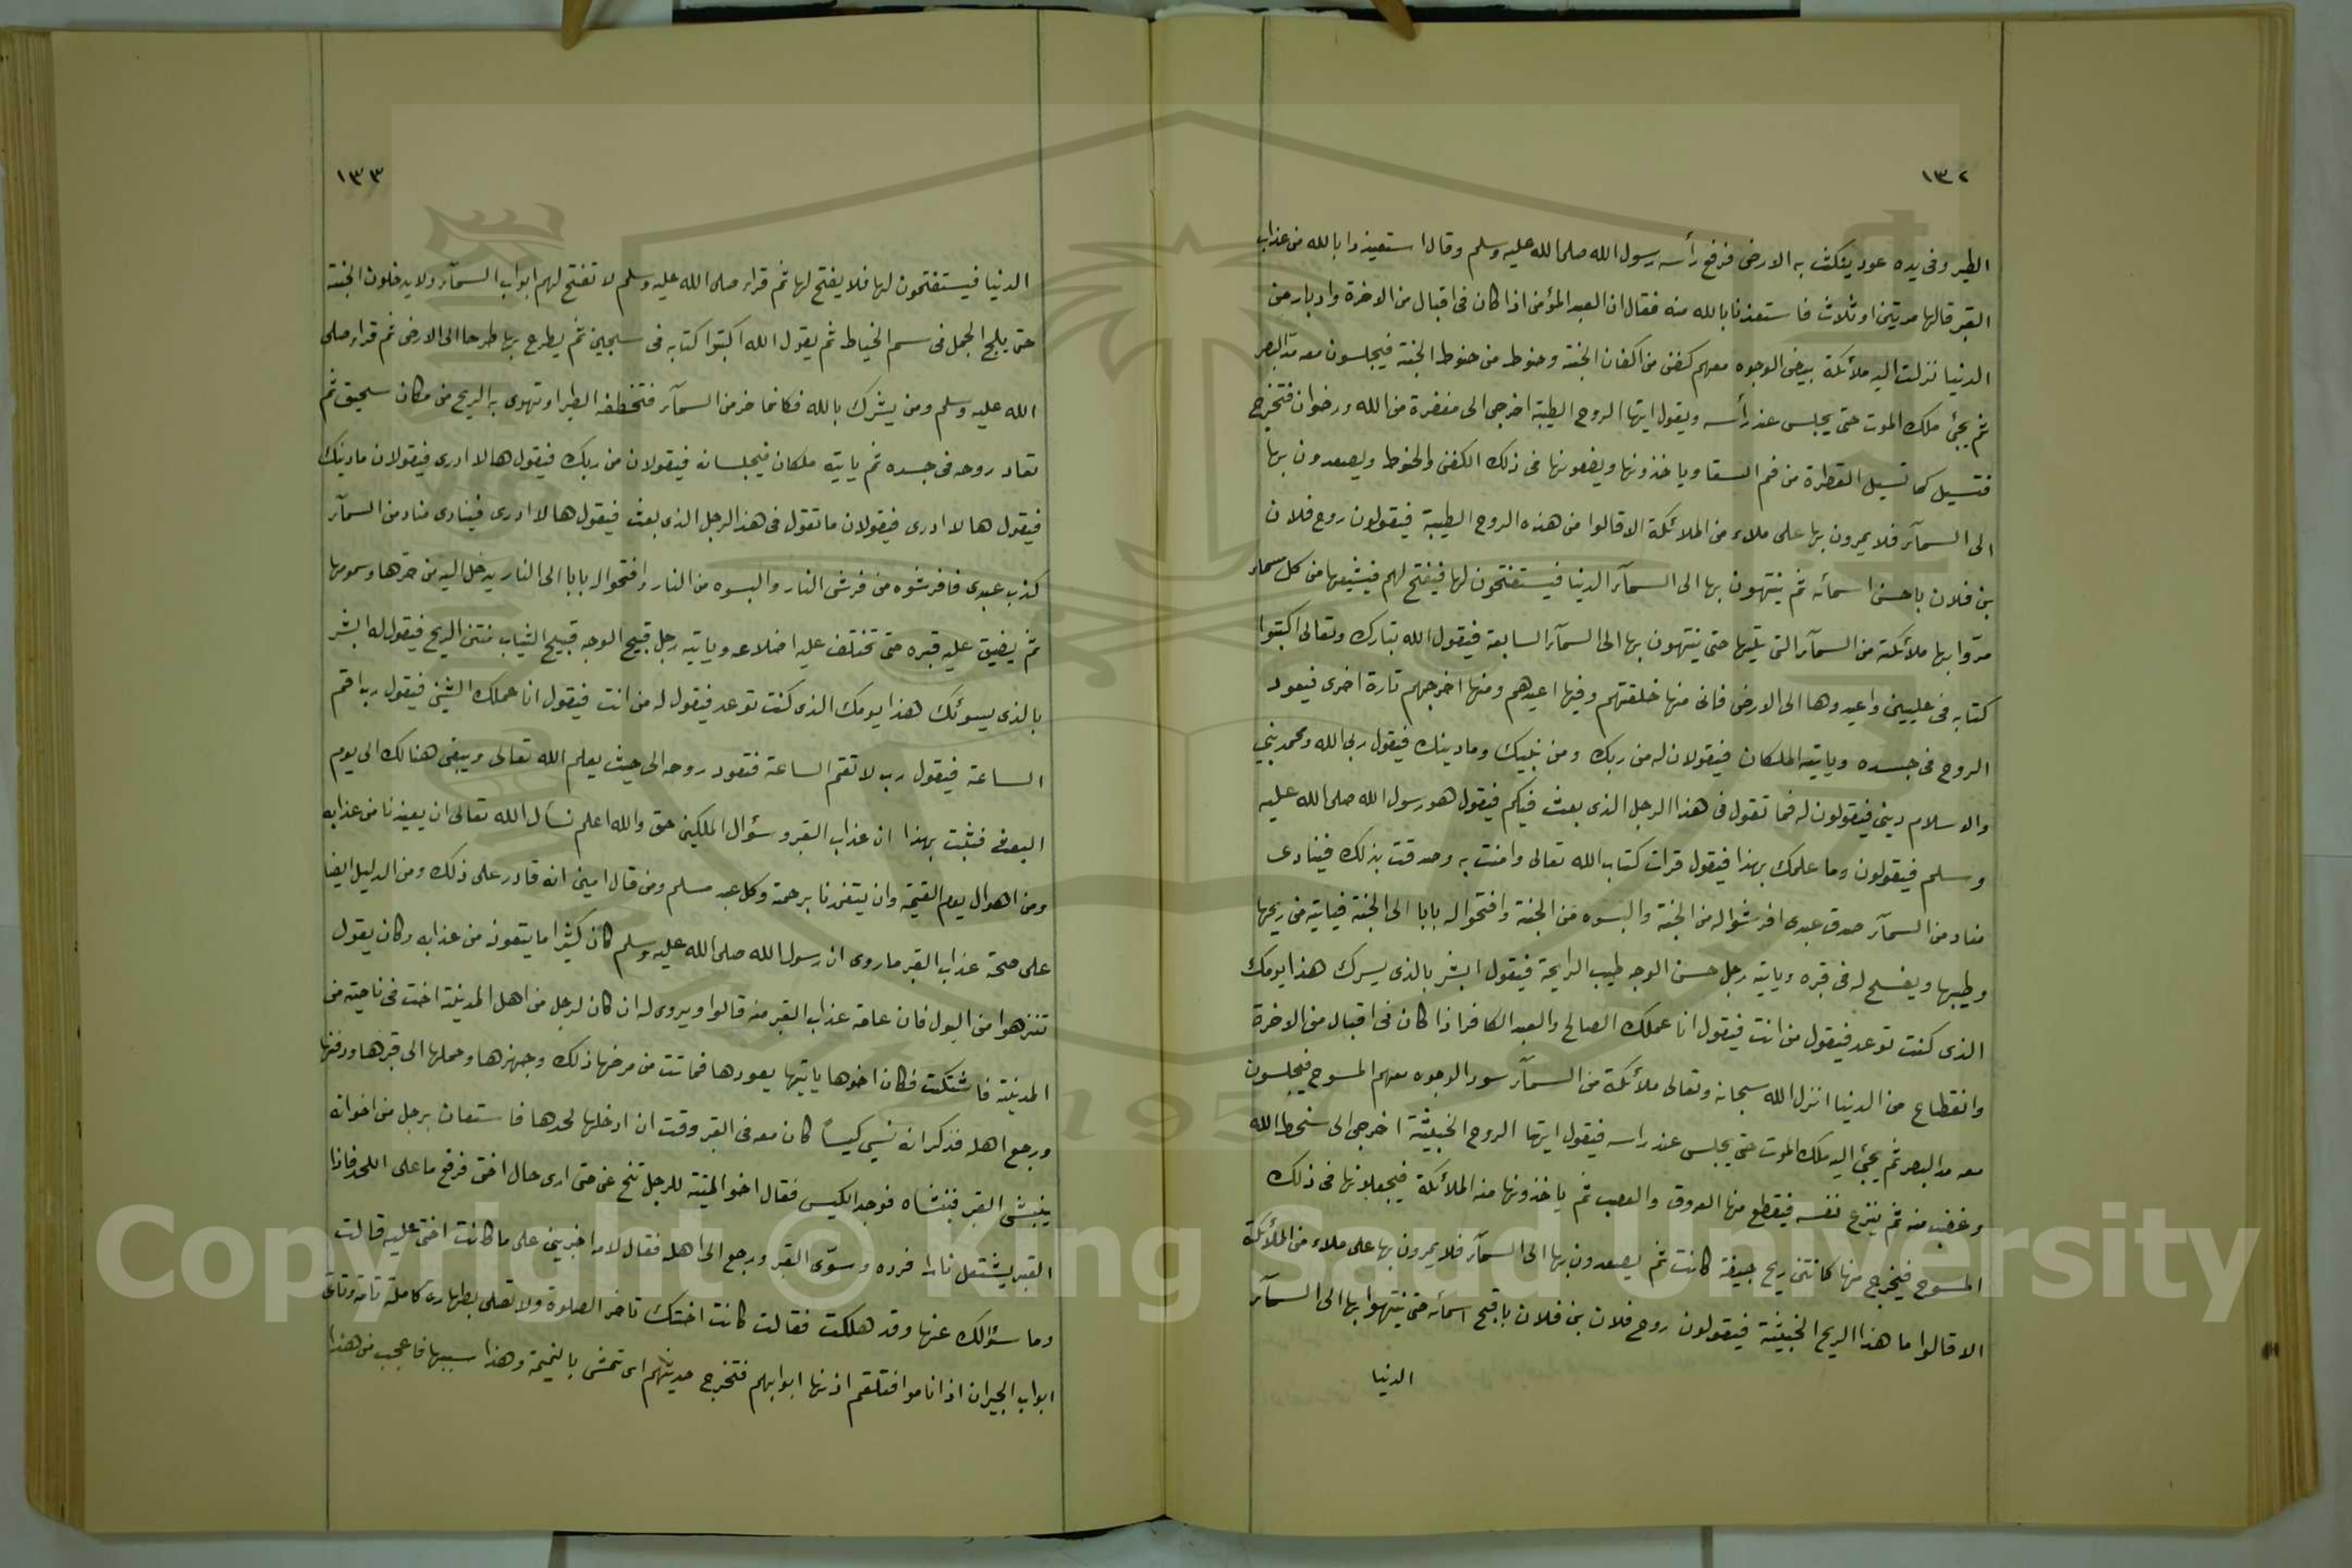 ١٣٢
الطير وفى يده عود ينكت به الارض فرفع رأسه رسول الله صلى الله عليه وسلم وقال استعيذوا بالله من عذاب
القبر قالها مرتين او ثلاث فاستعذنا بالله منه فقال ان العبد المؤمن اذا كان فى اقبال من الاخرة وادبار من
الدنيا نزلت اليه ملائكة بيض الوجوه معهم كفن من اكفان الجنة وحنوط من حنوط الجنة فيجلسون معه مدّ البصر
ثم يجئ ملك الموت حتى يجلس عند رأسه ويقول ايتها الروح الطيبة اخرجى الى مغفرة من الله ورضوان فتخرج
فتسيل كما تسيل القطرة من فم السقا وياخذونها ويضعونها فى ذلك الكفن والحنوط ويصعدون بها
الى السمآء فلا يمرون بها على ملاء من الملائكة الا قالوا من هذه الروح الطيبة فيقولون روح فلان
بن فلان باحسن اسمائه ثم ينتهون بها الى السمآء الدنيا فيستفتحون لها فيفتح لهم فيشيعها من كل سماء
مرّوا بها ملائكته من السمآء التى تليها حتى ينتهون بها الى السمآء السابعة فيقول الله تبارك وتعالى اكتبوا
كتابه فى عليين واعيدوها الى الارض فانى منها خلقتهم وفيها اعيدهم ومنها اخرجهم تارة اخرى فيعود
الروح فى جسده وياتيه الملكان فيقولان له من ربك ومن نبيك وما دينك فيقول ربى الله ومحمد نبيى
والاسلام دينى فيقولون له فما تقول فى هذا الرجل الذى بعث فيكم فيقول هو رسول الله صلى الله عليه
وسلم فيقولون وما علمك بهذا فيقول قرات كتاب الله تعالى وامنت به وصدقت بذلك فينادى
مناد من السمآء صدق عبدى افرشوا له من الجنة والبسوه من الجنة وافتحوا له بابا الى الجنة فياتيه من ريحها
وطيبها ويفسح له فى قبره وياتيه رجل حسن الوجه طيب الرايحة فيقول ابشر بالذى يسرك هذا يومك
الذى كنت توعد فيقول من انت فيقول انا عملك الصالح والعبد الكافر اذا كان فى اقبال من الاخرة
وانقطاع من الدنيا انزل الله سبحانه وتعالى ملائكة من السمآء سود الوجوه معهم المسوح فيجلسون
معه مد البصر ثم يجئ اليه ملك الموت حتى يجلس عند راسه فيقول ايتها الروح الخبيثة اخرجى الى سخط الله
وغضب منه ثم ينزع نفسه فيقطع منها العروق والعصب ثم ياخذونها منه الملائكة فيجعلونها فى ذلك
المسوح فيخرج منها كانتن ريح جيفة كانت ثم يصعدون بها الى السمآء فلا يمرون بها على ملاء من الملائكة
الا قالوا ما هذا الريح الخبيثة فيقولون روح فلان بن فلان باقبح اسمائه حتى ينتهوا بها الى السمآء
الدنيا
١٣٣
الدنيا فيستفتحون لها فلا يفتح لها ثم قراء صلى الله عليه وسلم لا تفتح لهم ابواب السمآء ولا يدخلون الجنة
حتى يلج الجمل فى سم الخياط ثم يقول الله اكتبوا كتابه فى سجين ثم يطرح بها طرحا الى الارض ثم قراء صلى
الله عليه وسلم ومن يشرك بالله فكانما خر من السمآء فتخطفه الطير او تهوى به الريح من مكان سحيق ثم
تعاد روحه فى جسده ثم ياتيه ملكان فيجلسانه فيقولان من ربك فيقول ها لا ادرى فيقولان ما دينك
فيقول ها لا ادرى فيقولان ما تقول فى هذا الرجل الذى بعث فيقول ها لا ادرى فينادى مناد من السمآء
كذب عبدى فافرشوه من فرش النار والبسوه من النار وافتحوا له بابا الى النار يدخل اليه من حرها وسمومها
ثم يضيق عليه قبره حتى تختلف عليه اضلاعه وياتيه رجل قبيح الوجه قبيح الثياب منتن الريح فيقول له ابشر
بالذى يسوئك هذا يومك الذى كنت توعد فيقول له من انت فيقول انا عملك الشين فيقول رب اقم
الساعة فيقول رب لا تقم الساعة فتعود روحه الى حيث يعلم الله تعالى ويبقى هنالك الى يوم
البعث فثبت بهذا ان عذاب القبر وسؤال الملكين حق والله اعلم نسأل الله تعالى ان يعيذنا من عذابه
ومن اهوال يوم القيمة وان يتغمدنا برحمة وكل عبد مسلم ومن قال امين انه قادر على ذلك ومن الدليل ايضا
على صحة عذاب القبر ما روى ان رسول الله صلى الله عليه وسلم كان كثيرا ما يتعوذ من عذابه وكان يقول
تنزهوا من البول فان عامة عذاب القبر منه قالوا ويروى له ان كان لرجل من اهل المدينة اخت فى ناحية من
المدينة فاشتكت فكان اخوها ياتيها يعودها فماتت من مرضها ذلك وجهزها وحملها الى قبرها ودفنها
ورجع اهله فذكر انه نسي كيساً كان معه فى القبر وقت ان ادخلها لحدها فاستعان برجل من اخوانه
ينبش القبر فنبشاه فوجد الكيس فقال اخو الميتة للرجل تنح عنى حتى ارى حال اختى فرفع ما على اللحد فاذا
القبر يشتعل نارا فرده وسوّى القبر ورجع الى اهله فقال لامه اخبرينى على ما كانت اختى عليه قالت
وما سؤالك عنها وقد هلكت فقالت كانت اختك تاخر الصلوة ولا تصلى بطهارة كاملة تامة وتاتى
ابواب الجيران اذا ناموا فتلقم اذنها ابوابهم فتخرج حديثهم اى تمشى بالنميمة وهذا سببها فاعجب من هذا
Copyright © King Saud University